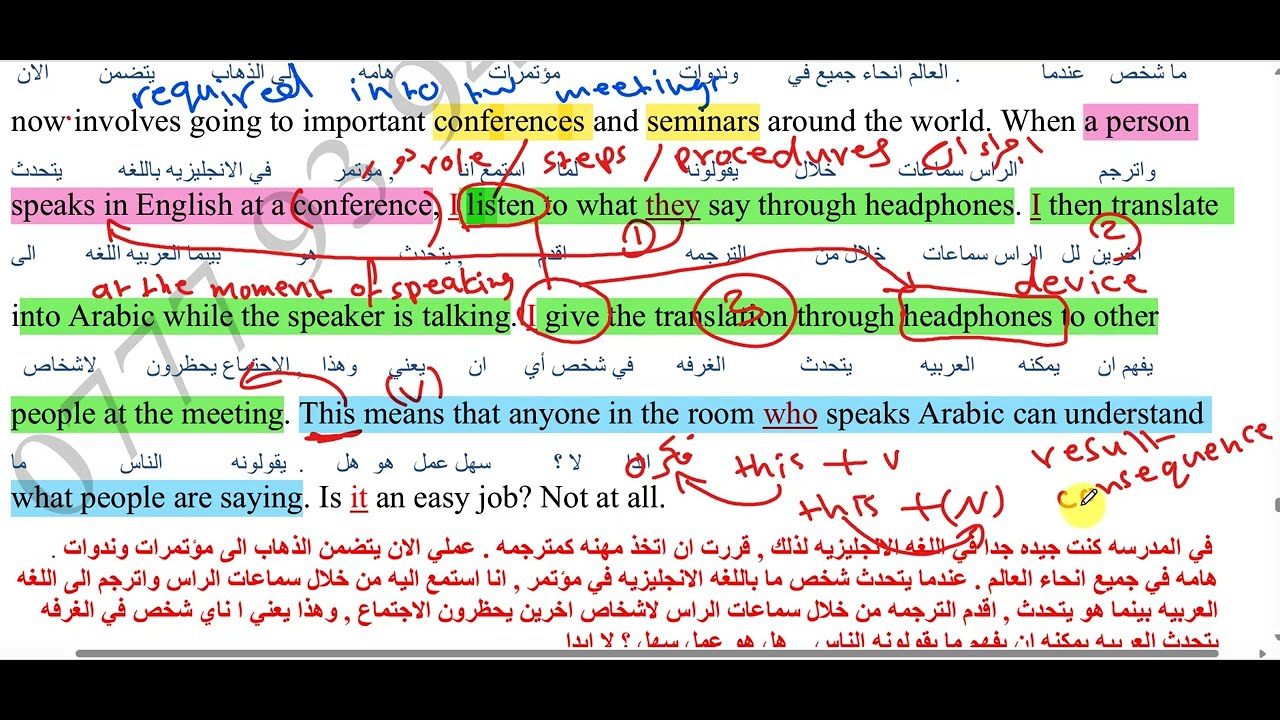 ما شخص عندما . العالم انحاء جميع في وندوات مؤتمرات هامه الى الذهاب يتضمن الان
required into tw meetings
now involves going to important conferences and seminars around the world. When a person
role / steps / procedures اجراءات
واترجم الراس سماعات خلال يقولونه لما استمع انا , مؤتمر في الانجليزيه باللغه يتحدث
speaks in English at a conference, I listen to what they say through headphones. I then translate
1 2
اخرين لل الراس سماعات خلال من الترجمه اقدم , يتحدث هو بينما العربيه اللغه الى
at the moment of speaking device
into Arabic while the speaker is talking. I give the translation through headphones to other
3
يفهم ان يمكنه العربيه يتحدث الغرفه في شخص أي ان يعني وهذا , الاجتماع يحظرون لاشخاص
(v)
people at the meeting. This means that anyone in the room who speaks Arabic can understand
ابدا لا ؟ سهل عمل هو هل . يقولونه الناس ما
this + v result
what people are saying. Is it an easy job? Not at all.
this + (N) consequence
في المدرسه كنت جيده جدا في اللغه الانجليزيه لذلك , قررت ان اتخذ مهنه كمترجمه . عملي الان يتضمن الذهاب الى مؤتمرات وندوات .
هامه في جميع انحاء العالم . عندما يتحدث شخص ما باللغه الانجليزيه في مؤتمر , انا استمع اليه من خلال سماعات الراس واترجم الى اللغه
العربيه بينما هو يتحدث , اقدم الترجمه من خلال سماعات الراس لاشخاص اخرين يحظرون الاجتماع , وهذا يعني ا ناي شخص في الغرفه
يتحدث العربيه يمكنه ان يفهم ما يقولونه الناس . هل هو عمل سهل ؟ لا ابدا